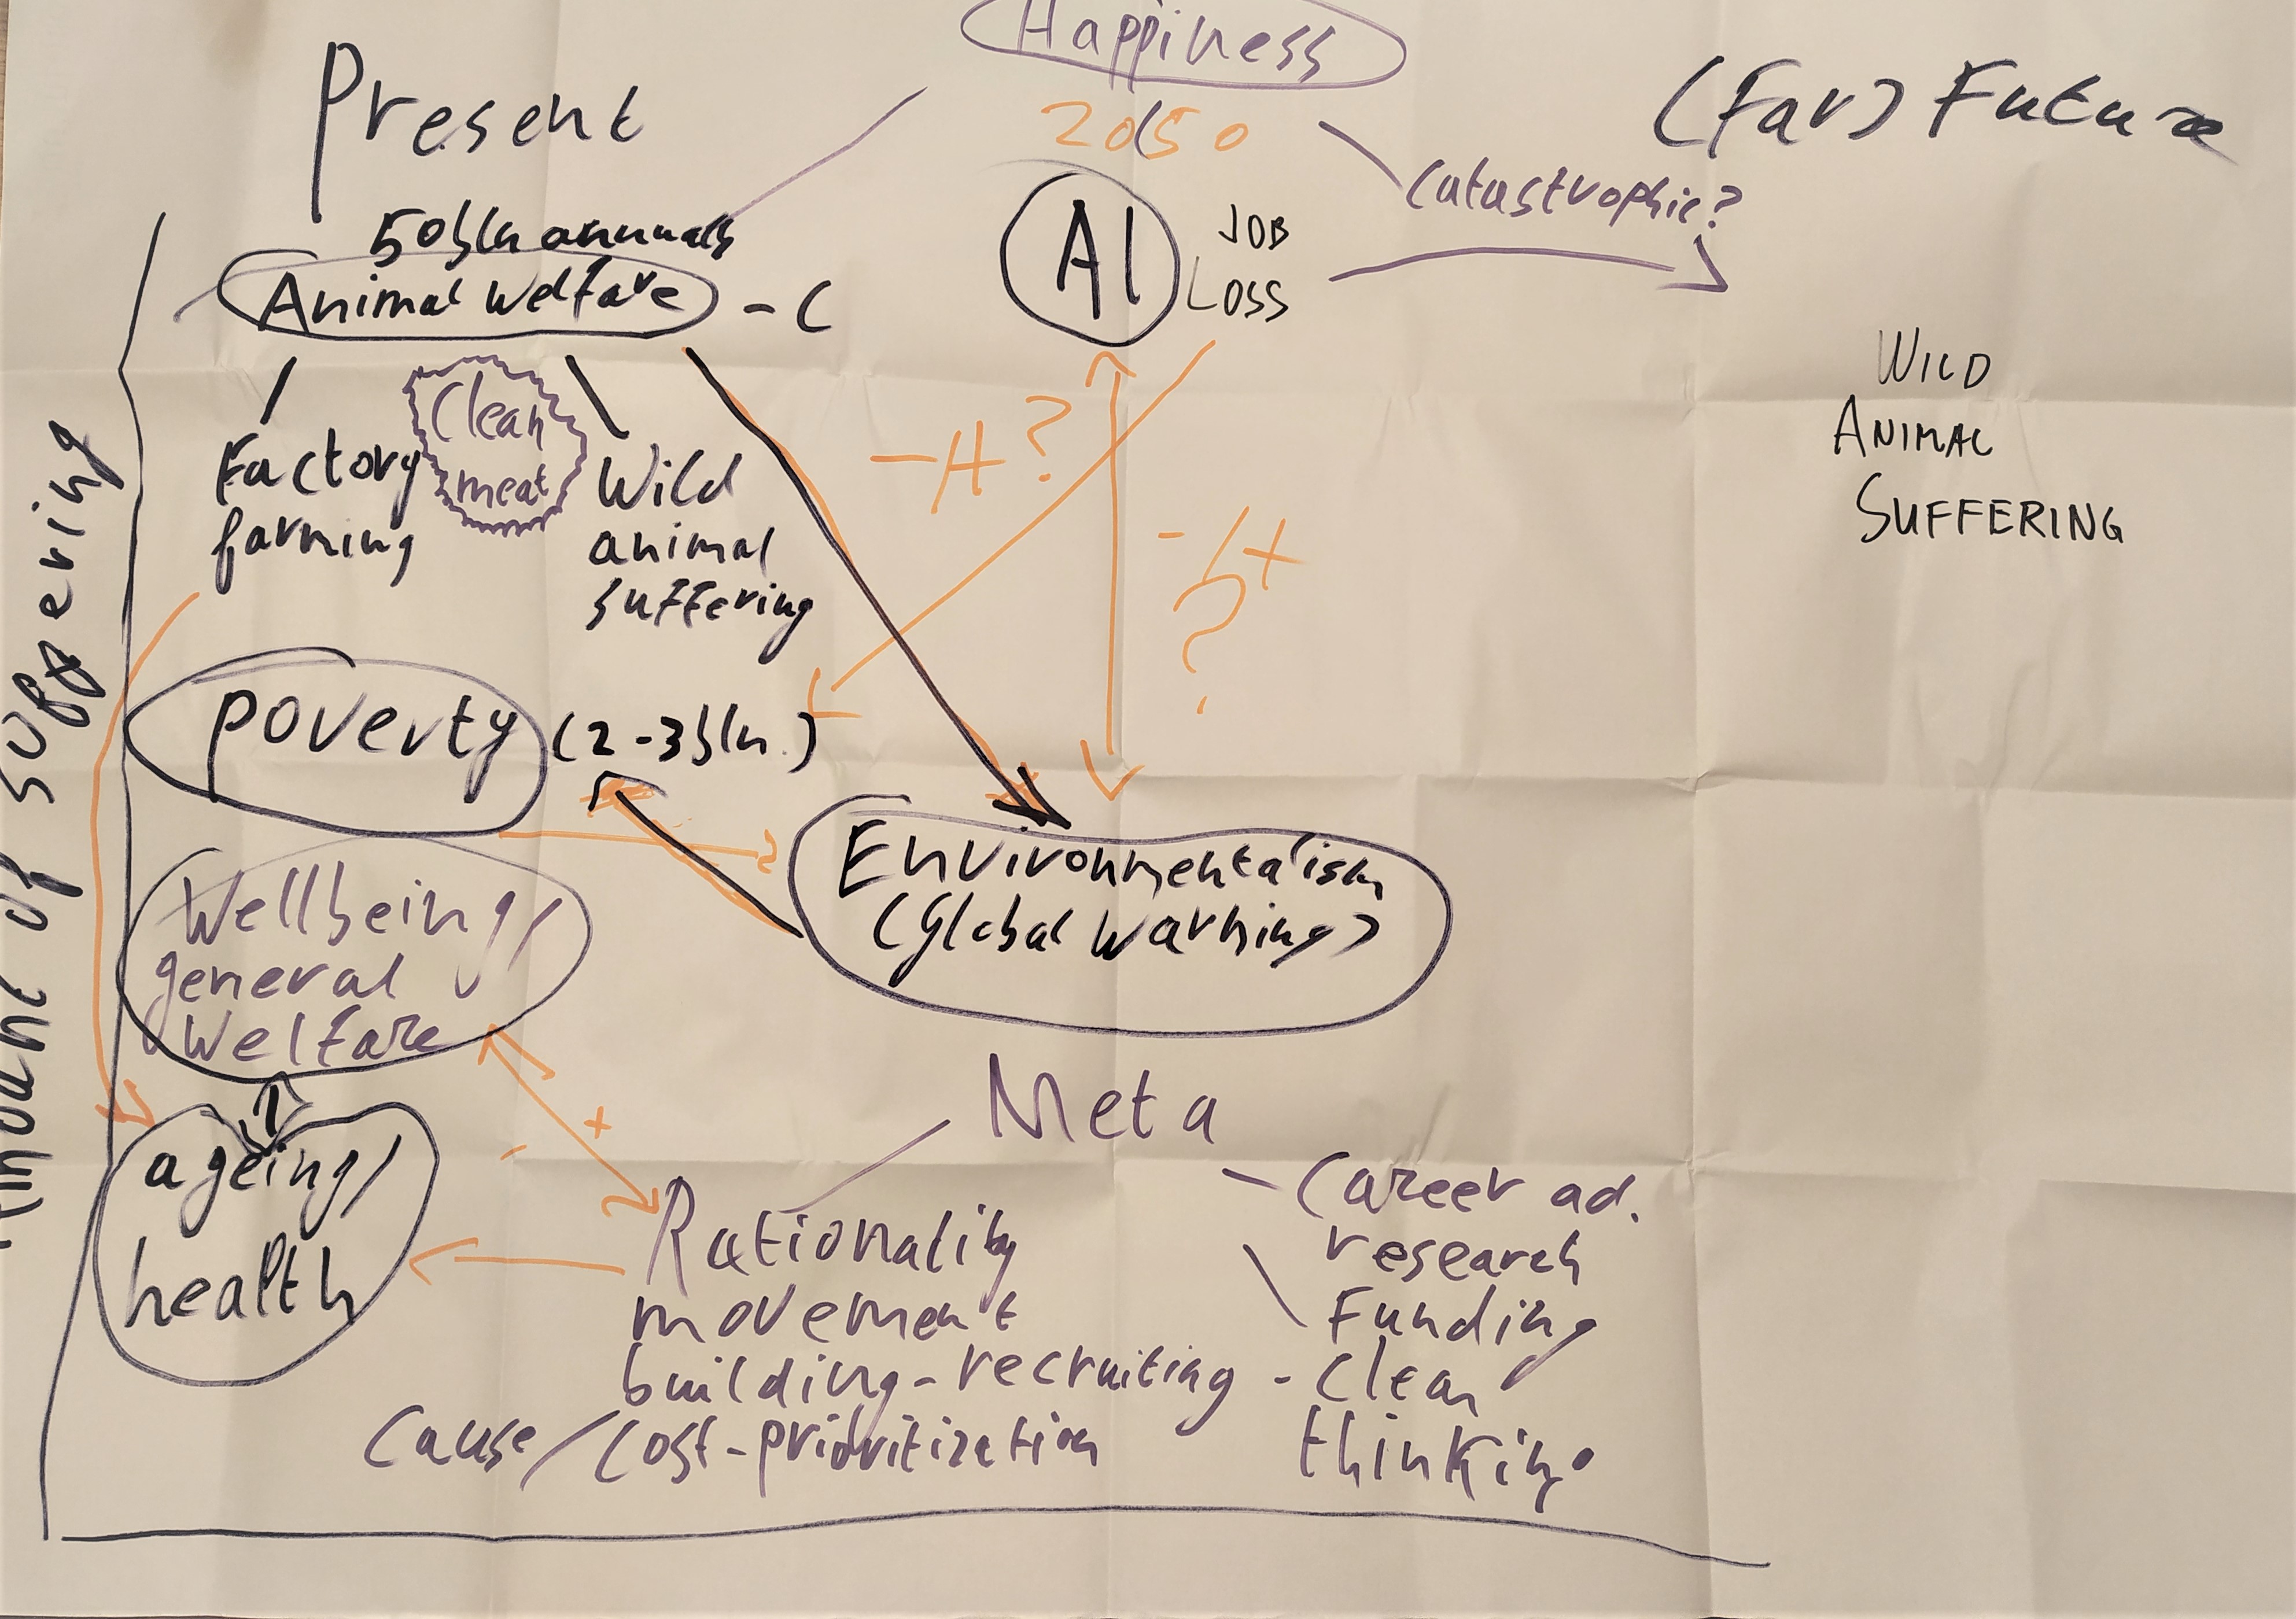 Happiness
Present
2050
(Far) Future
Catastrophic?
50 bln animals
Animal Welfare - C
AI
JOB
LOSS
Clean
meat
Factory
farming
Wild
animal
suffering
WILD
ANIMAL
SUFFERING
-/+?
-/+
?
Amount of suffering
poverty (2-3 bln.)
Environmentalism
(Global Warming)
Wellbeing/
general
Welfare
ageing/
health
+
-
Meta
Rationality
movement
building-recruiting
Cause/Cost-prioritization
- Career ad.
research
Funding
- Clear
thinking